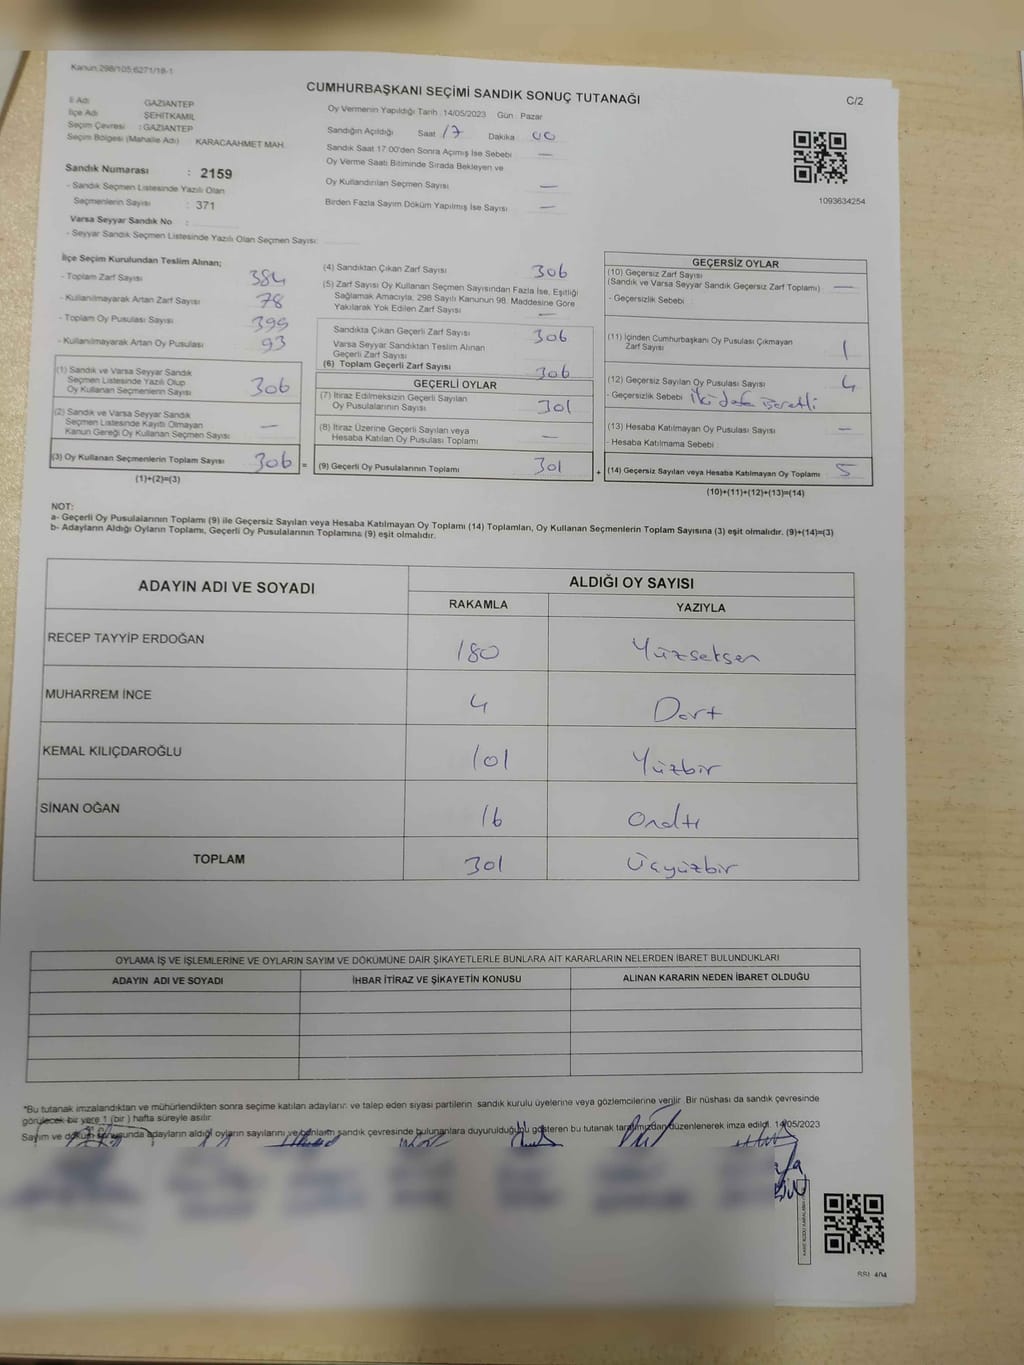 Kanun:298/105;6271/18-1
CUMHURBAŞKANI SEÇİMİ SANDIK SONUÇ TUTANAĞI
C/2
İl Adı GAZİANTEP
İlçe Adı ŞEHİTKAMİL
Seçim Çevresi : GAZİANTEP
Seçim Bölgesi (Mahalle Adı) KARACAAHMET MAH.
Oy Vermenin Yapıldığı Tarih :14/05/2023 Gün : Pazar
Sandığın Açıldığı Saat 17 Dakika 00
Sandık Saat 17:00'den Sonra Açımış İse Sebebi —
Oy Verme Saati Bitiminde Sırada Bekleyen ve
Oy Kullandırılan Seçmen Sayısı —
Birden Fazla Sayım Döküm Yapılmış İse Sayısı —
1093634254
Sandık Numarası : 2159
- Sandık Seçmen Listesinde Yazılı Olan
Seçmenlerin Sayısı : 371
Varsa Seyyar Sandık No :
- Seyyar Sandık Seçmen Listesinde Yazılı Olan Seçmen Sayısı:
İlçe Seçim Kurulundan Teslim Alınan;
- Toplam Zarf Sayısı 384
- Kullanılmayarak Artan Zarf Sayısı 78
- Toplam Oy Pusulası Sayısı 399
- Kullanılmayarak Artan Oy Pusulası 93
(1) Sandık ve Varsa Seyyar Sandık
Seçmen Listesinde Yazılı Olup
Oy Kullanan Seçmenlerin Sayısı 306
(2) Sandık ve Varsa Seyyar Sandık
Seçmen Listesinde Kayıtlı Olmayan
Kanun Gereği Oy Kullanan Seçmen Sayısı —
(3) Oy Kullanan Seçmenlerin Toplam Sayısı 306 =
(1)+(2)=(3)
(4) Sandıktan Çıkan Zarf Sayısı 306
(5) Zarf Sayısı Oy Kullanan Seçmen Sayısından Fazla İse, Eşitliği
Sağlamak Amacıyla; 298 Sayılı Kanunun 98. Maddesine Göre
Yakılarak Yok Edilen Zarf Sayısı —
Sandıkta Çıkan Geçerli Zarf Sayısı 306
Varsa Seyyar Sandıktan Teslim Alınan
Geçerli Zarf Sayısı
(6) Toplam Geçerli Zarf Sayısı 306
GEÇERLİ OYLAR
(7) İtiraz Edilmeksizin Geçerli Sayılan
Oy Pusulalarının Sayısı 301
(8) İtiraz Üzerine Geçerli Sayılan veya
Hesaba Katılan Oy Pusulası Toplamı —
(9) Geçerli Oy Pusulalarının Toplamı 301 +
GEÇERSİZ OYLAR
(10) Geçersiz Zarf Sayısı
(Sandık ve Varsa Seyyar Sandık Geçersiz Zarf Toplamı) —
- Geçersizlik Sebebi
(11) İçinden Cumhurbaşkanı Oy Pusulası Çıkmayan
Zarf Sayısı 1
(12) Geçersiz Sayılan Oy Pusulası Sayısı 4
- Geçersizlik Sebebi İki defa işaretli
(13) Hesaba Katılmayan Oy Pusulası Sayısı —
- Hesaba Katılmama Sebebi
(14) Geçersiz Sayılan veya Hesaba Katılmayan Oy Toplamı 5
(10)+(11)+(12)+(13)=(14)
NOT:
a- Geçerli Oy Pusulalarının Toplamı (9) ile Geçersiz Sayılan veya Hesaba Katılmayan Oy Toplamı (14) Toplamları, Oy Kullanan Seçmenlerin Toplam Sayısına (3) eşit olmalıdır. (9)+(14)=(3)
b- Adayların Aldığı Oyların Toplamı, Geçerli Oy Pusulalarının Toplamına (9) eşit olmalıdır.
ADAYIN ADI VE SOYADI ALDIĞI OY SAYISI
RAKAMLA YAZIYLA
RECEP TAYYİP ERDOĞAN 180 Yüzseksen
MUHARREM İNCE 4 Dört
KEMAL KILIÇDAROĞLU 101 Yüzbir
SİNAN OĞAN 16 Onaltı
TOPLAM 301 Üçyüzbir
OYLAMA İŞ VE İŞLEMLERİNE VE OYLARIN SAYIM VE DÖKÜMÜNE DAİR ŞİKAYETLERLE BUNLARA AİT KARARLARIN NELERDEN İBARET BULUNDUKLARI
ADAYIN ADI VE SOYADI İHBAR İTİRAZ VE ŞİKAYETİN KONUSU ALINAN KARARIN NEDEN İBARET OLDUĞU
*Bu tutanak imzalandıktan ve mühürlendikten sonra seçime katılan adayların ve talep eden siyasi partilerin sandık kurulu üyelerine veya gözlemcilerine verilir. Bir nüshası da sandık çevresinde
görülecek bir yere 1 (bir ) hafta süreyle asılır.
Sayım ve döküm sonucunda adayların aldığı oyların sayılarını ve bunların sandık çevresinde bulunanlara duyurulduğunu gösteren bu tutanak tarafımızdan düzenlenerek imza edildi. 14/05/2023